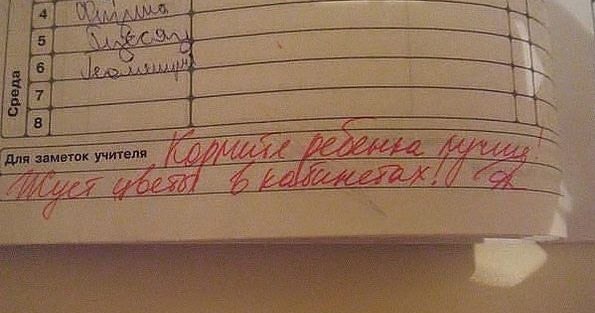 4 Физика
5
6 Геометрия
7
8
Среда
Для заметок учителя Кормите ребенка лучше!
Жует цветы в кабинетах!